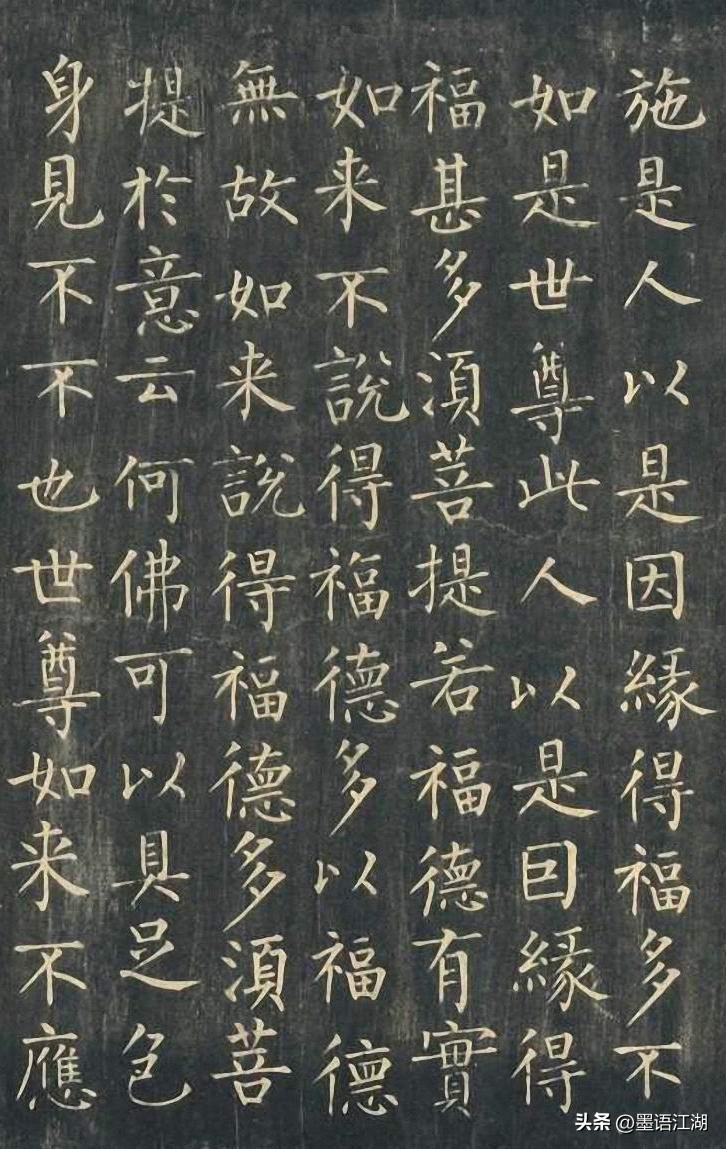 施是人以是因緣得福多不
如是世尊此人以是囙緣得
福甚多須菩提若福德有實
如来不說得福德多以福德
無故如来說得福德多須菩
提於意云何佛可以具足色
身見不不也世尊如来不應
头条 @墨语江湖